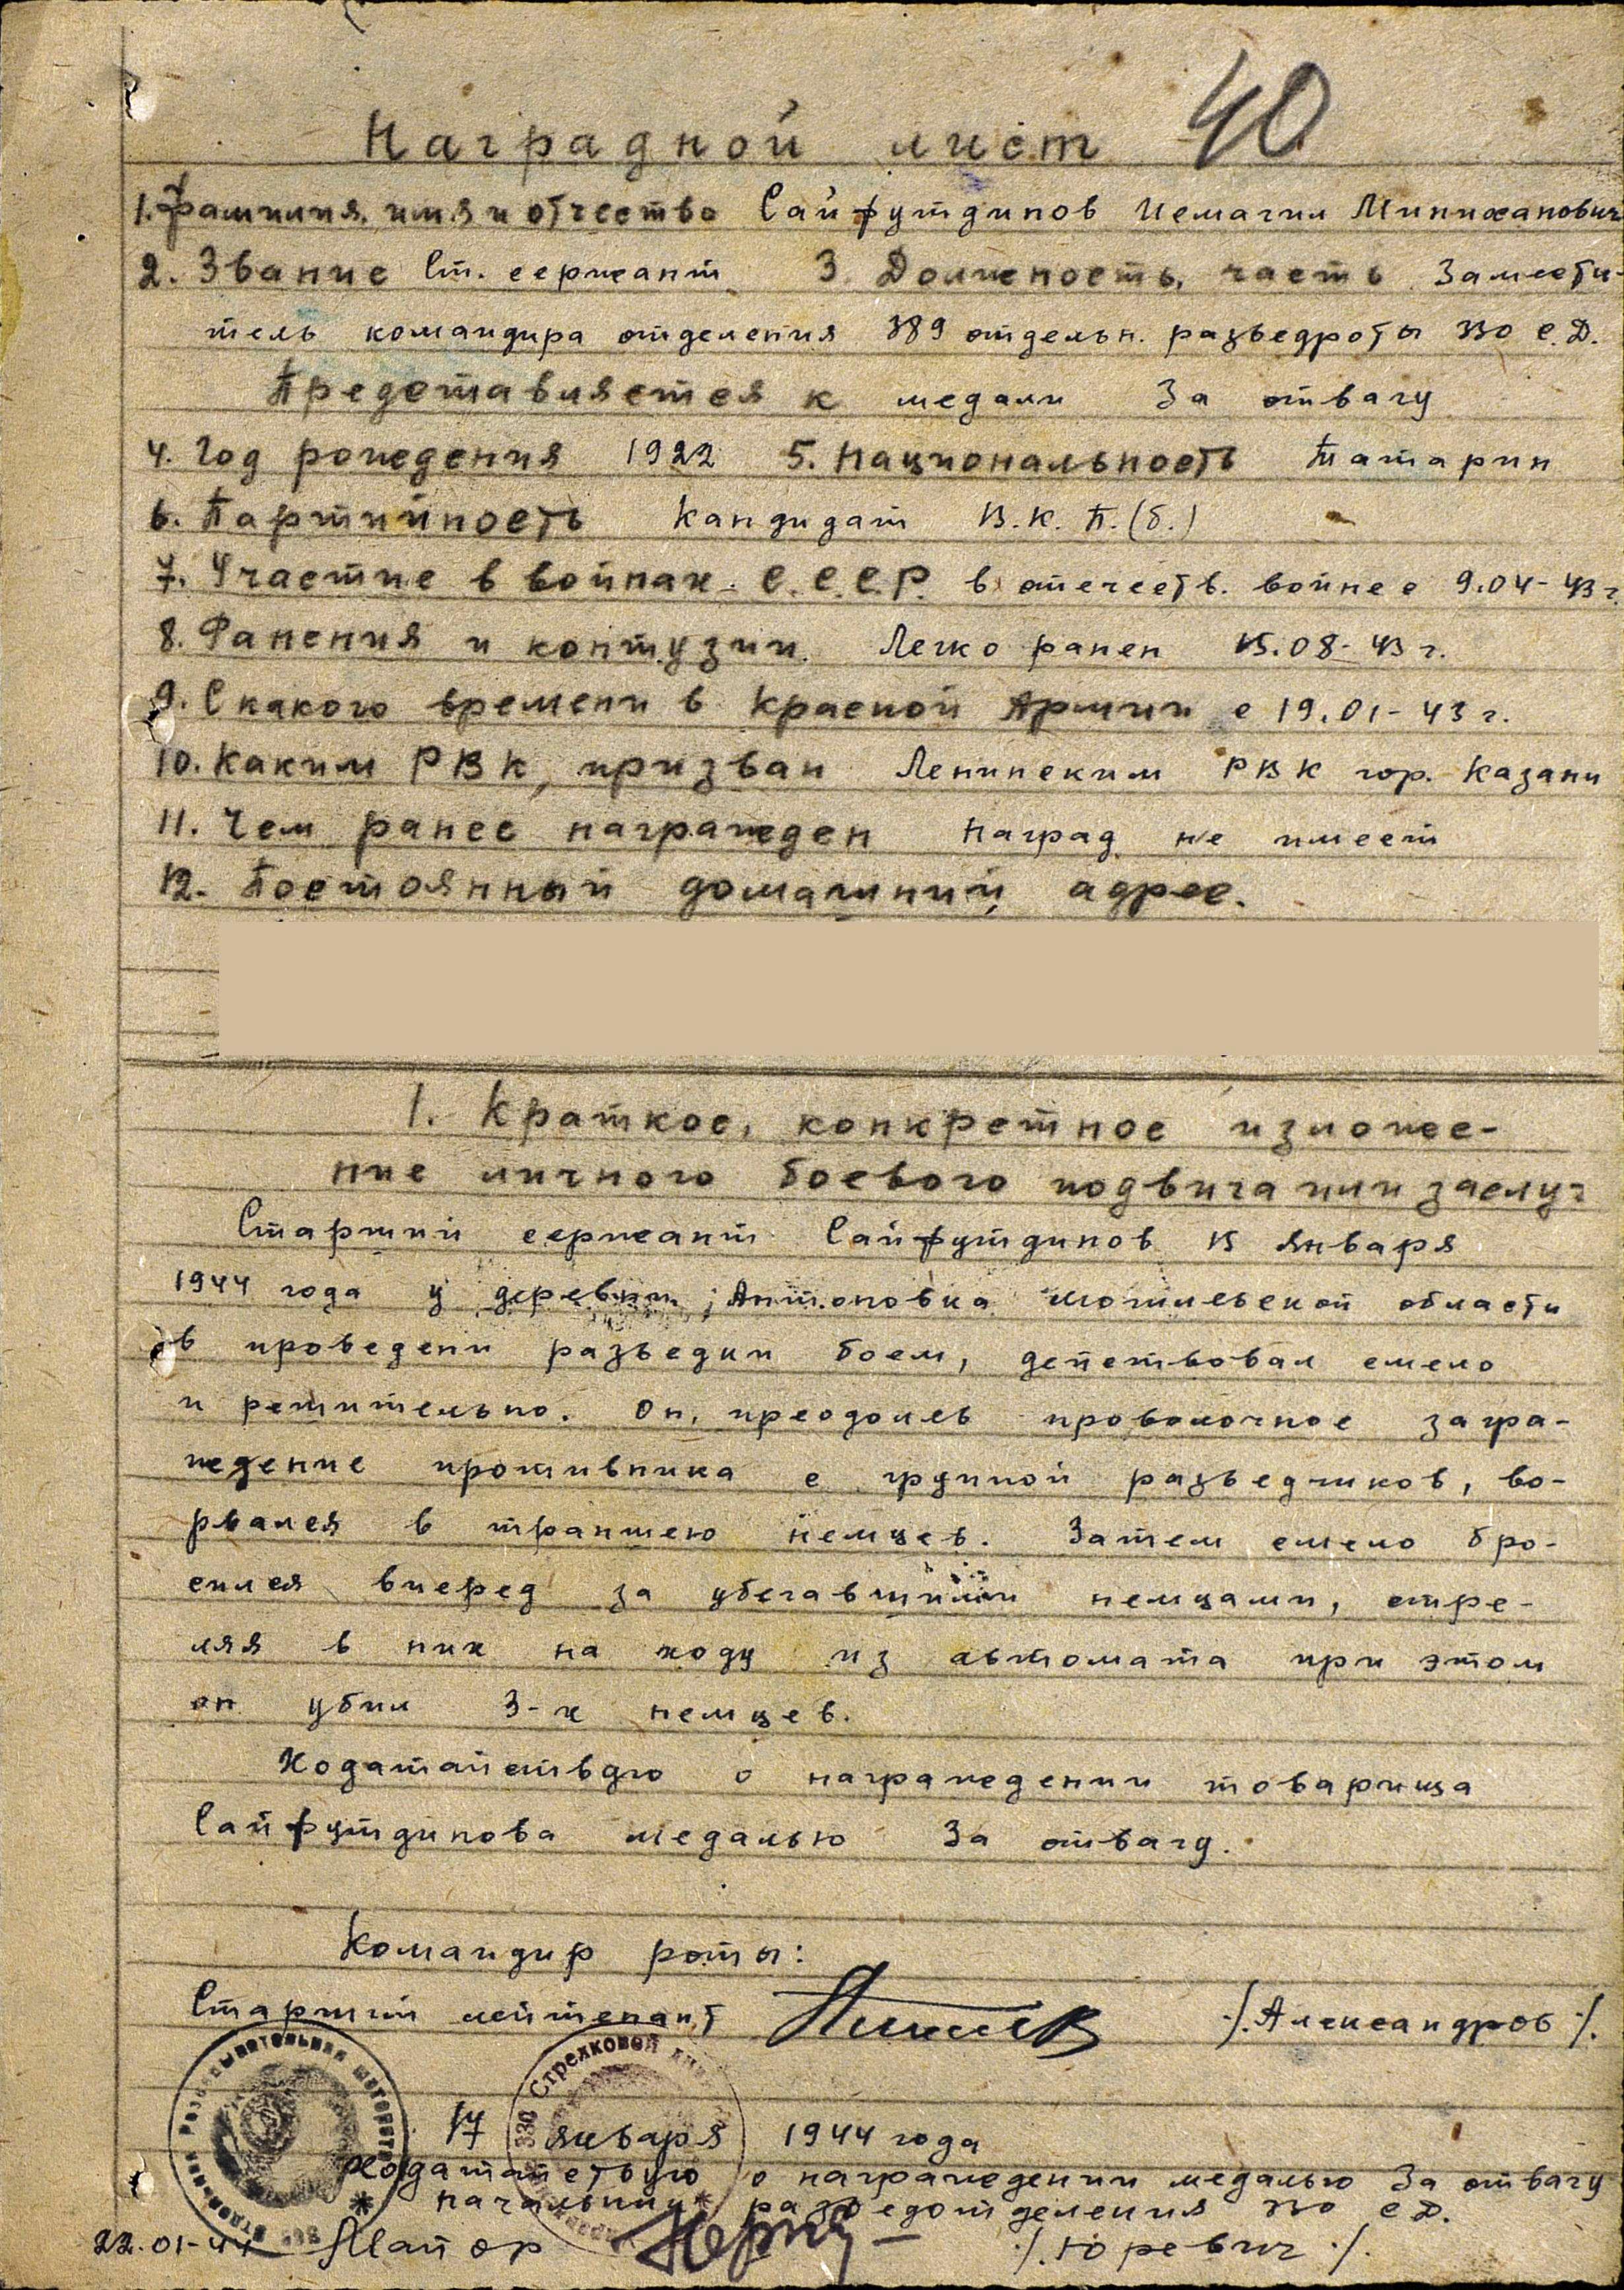 Наградной лист 40
1. Фамилия, имя и отчество Сайфутдинов Исмагил Миниханович
2. Звание Ст. сержант 3. Должность, часть Замести-
тель командира отделения 389 отдельн. разведроты 330 с.д.
Представляется к медали За отвагу
4. Год рождения 1922 5. Национальность Татарин
6. Партийность Кандидат В.К.П.(б.)
7. Участие в войнах С.С.С.Р. в отечеств. войне с 9.04-43 г.
8. Ранения и контузии Легко ранен 15.08-43 г.
9. С какого времени в Красной Армии с 19.01-43 г.
10. Каким РВК, призван Ленинским РВК гор. Казани
11. Чем ранее награжден Наград не имеет
12. Постоянный домашний адрес.
1. Краткое, конкретное изложе-
ние личного боевого подвига или заслуг
Старший сержант Сайфутдинов 15 января
1944 года у деревни Антоновка могилевской области
в проведени разъедки боем, действовал смело
и решительно. Он, преодолев проволочное загра-
ждение противника с групой разъедчиков, во-
рвался в траншею немцев. Затем смело бро-
сился вперед за убегавшими немцами, стре-
ляя в них на ходу из автомата при этом
он убил 3-х немцев.
Ходатайствую о награждении товарища
Сайфутдинова медалью За отвагу.
Командир роты:
Старший лейтенант /.Александров./
17 января 1944 года
330 Стрелковой
Ходатайствую о награждении медалью За отвагу
Начальник разведотделения 330 с.д.
22.01-44 Майор /.Юревич./